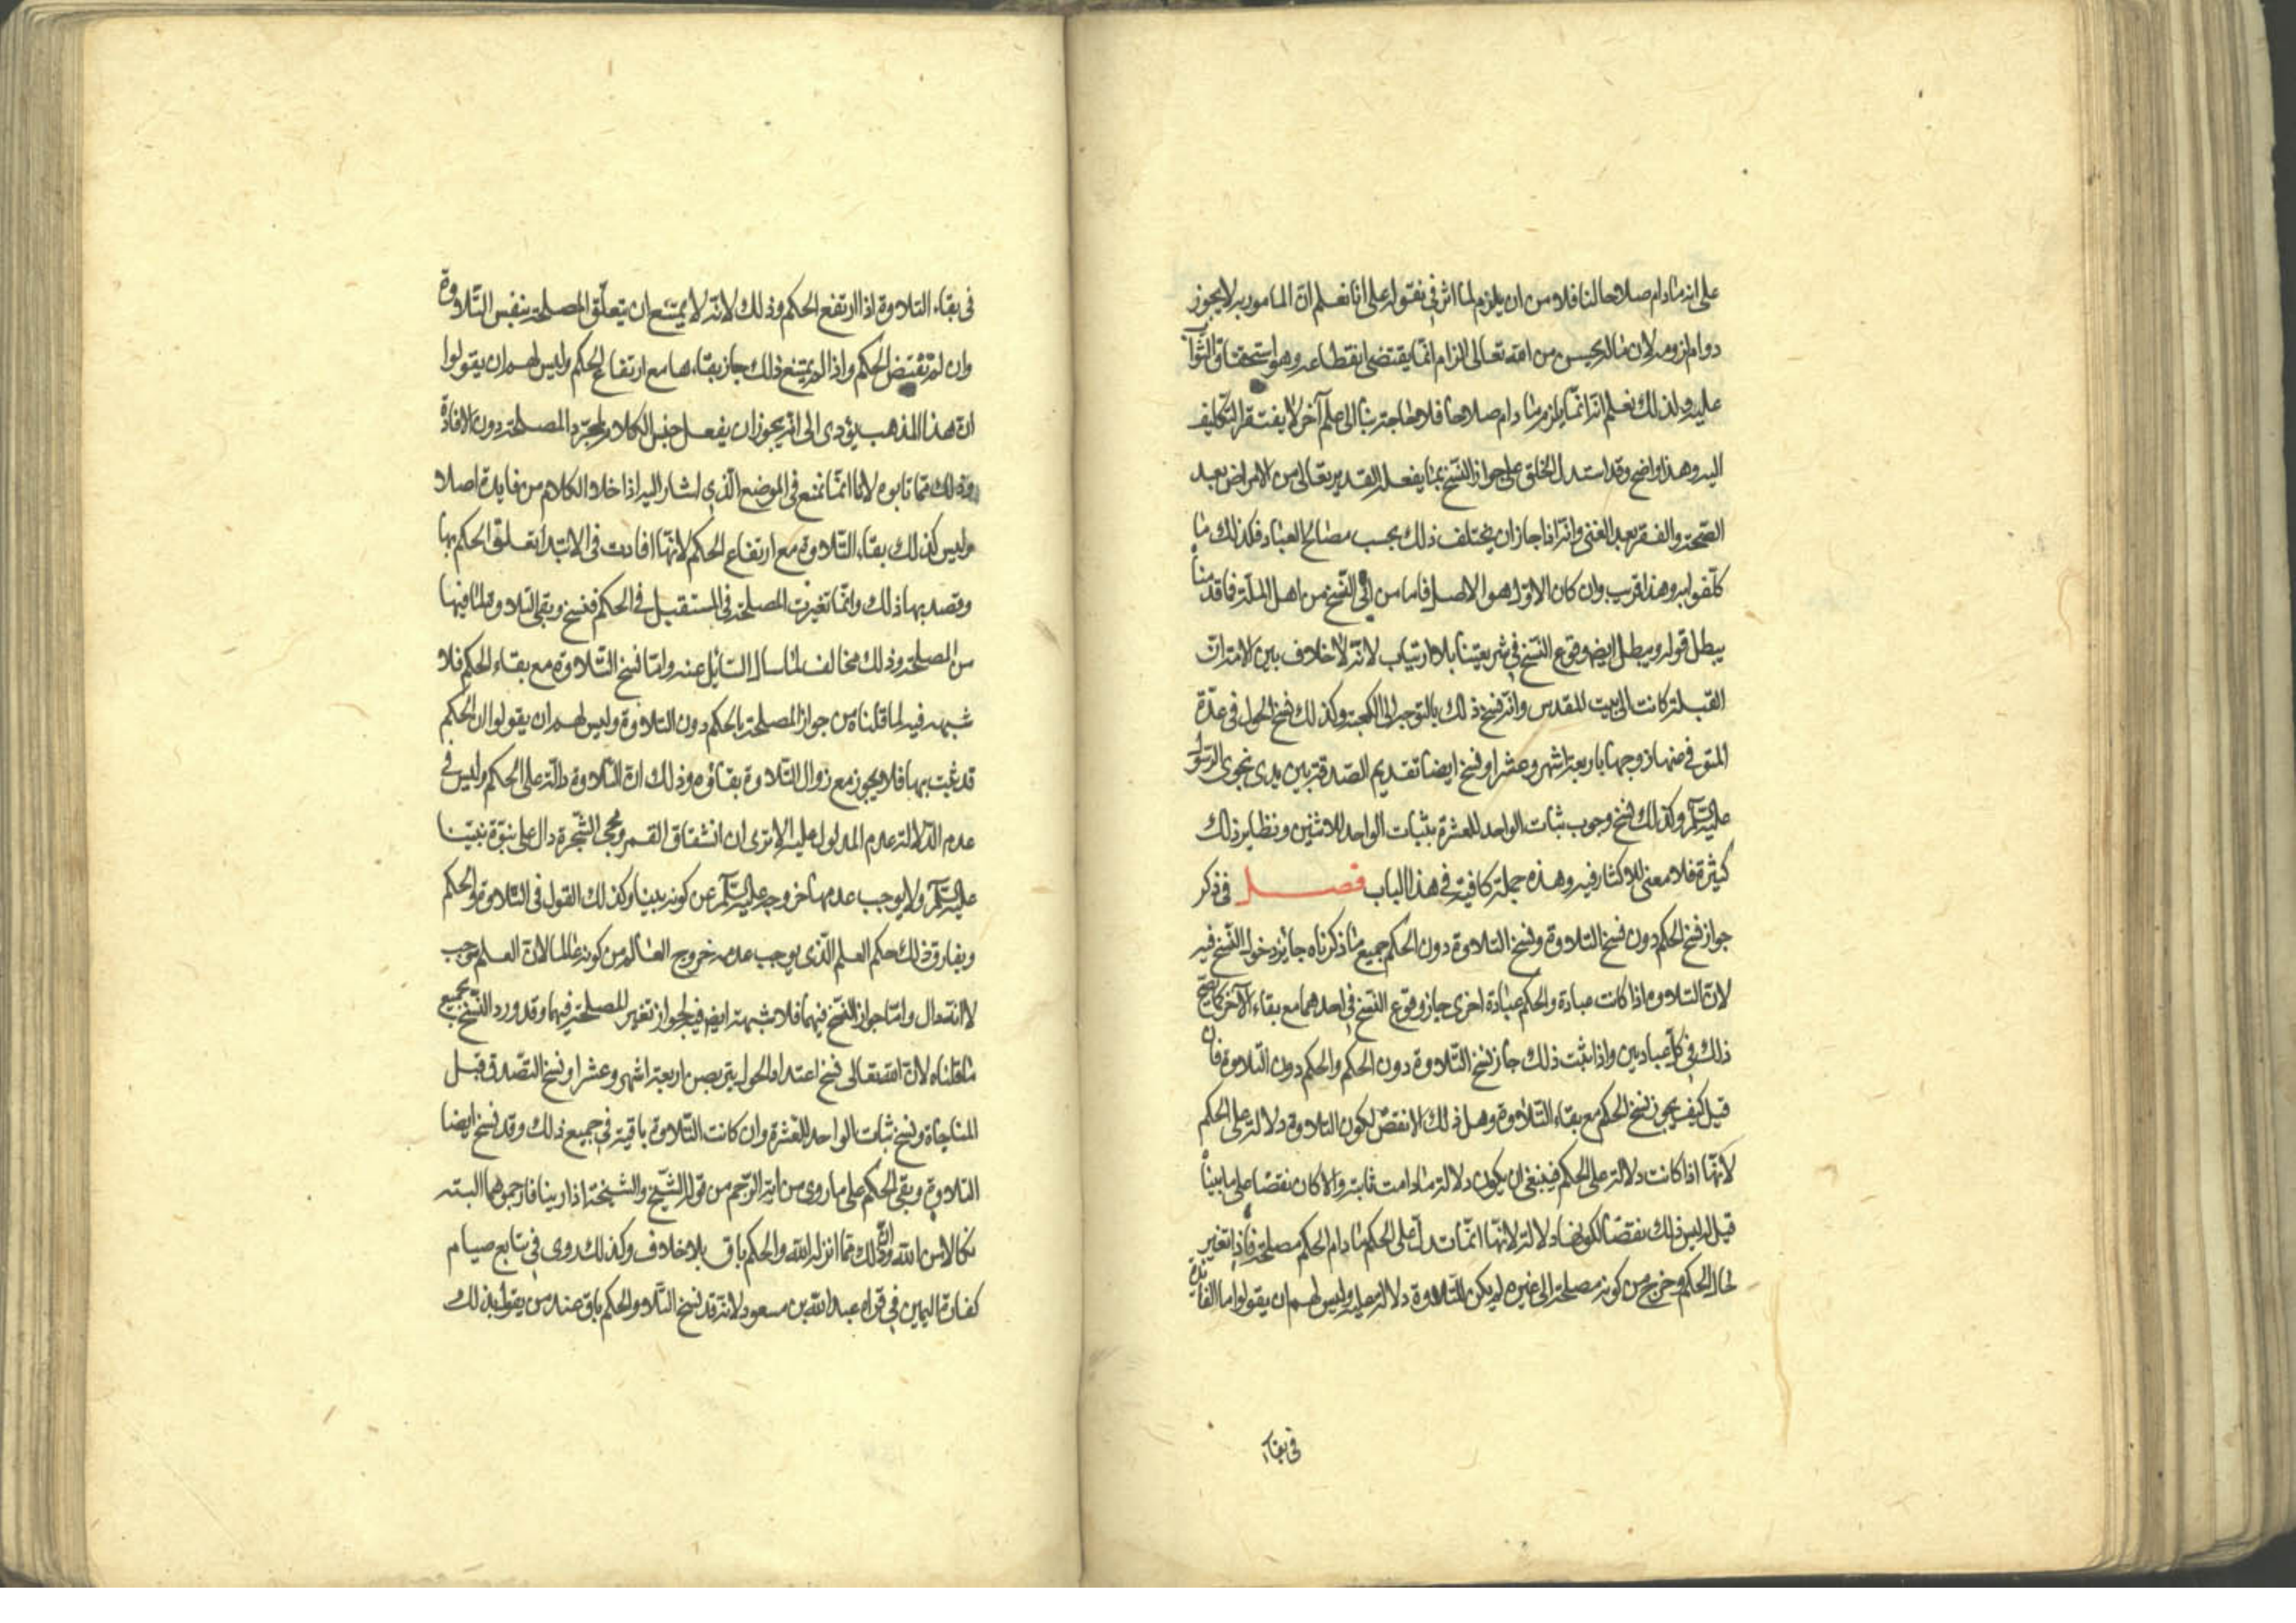 على انه مادام صلاحا لنا فلا من ان يلزم لما اثر في نقوله على انا نعلم ان المامور به لا يجوز
دوام لزومه لان ما له يحسن من الله تعالى الزام انما يقتضي انقطاعه وهو استحقاق الثواب
عليه ولذلك نعلم انه انما يلزم ما دام صلاحا فلا حاجة بنا الى اعلم آخر لا يفتقر التكليف
اليه وهذا واضح وقد استدل الخلق على جواز النسخ بما يفعله القديم تعالى من الامراض بعد
الصحة والفقر بعد الغنى وانه اذا جاز ان يختلف ذلك بحسب مصالح العباد فكذلك ما
كلفوا به وهذا قريب وان كان الاول هو الاصل فاما من ابى النسخ من اهل الملة فما قدمناه
يبطل قوله ويبطل ايضا وقوع النسخ في شريعتنا بلا ارتياب لانه لا خلاف بين الامة ان
القبلة كانت الى بيت المقدس وانه نسخ ذلك بالتوجه الى الكعبة وكذلك نسخ الحول في عدة
المتوفى عنها زوجها باربعة اشهر وعشرا ونسخ ايضا تقديم الصدقة بين يدى نجوى الرسول
عليه السلم وكذلك نسخ وجوب ثبات الواحد للعشرة بثبات الواحد للاثنين ونظاير ذلك
كثيرة فلا معنى للاكثار فيه وهذه جملة كافية في هذا الباب فصل في ذكر
جواز نسخ الحكم دون نسخ التلاوة ونسخ التلاوة دون الحكم جميع ما ذكرناه جايز دخول النسخ فيه
لان التلاوة اذا كانت عبادة والحكم عبادة اخرى جاز وقوع النسخ في احدهما مع بقاء الآخر كما يصح
ذلك في كل عبادتين واذا ثبت ذلك جاز نسخ التلاوة دون الحكم والحكم دون التلاوة فان
قيل كيف يجوز نسخ الحكم مع بقاء التلاوة وهل ذلك الا نقض لكون التلاوة دلالة على الحكم
لانها اذا كانت دلالة على الحكم فينبغى ان يكون دلالة ما دامت ثابتة والا كان نقضا على ما بيناه
قيل له ليس ذلك نقضا لكونها دلالة لانها انما تدل على الحكم ما دام الحكم مصلحة فاذا تغير
حال الحكم وخرج من كونه مصلحة الى غيره لم يكن التلاوة دلالة عليه وليس لهم ان يقولوا ما الفائدة
في بقاء
في بقاء التلاوة اذا ارتفع الحكم وذلك لانه لا يمتنع ان يتعلق المصلحة بنفس التلاوة
وان لم تقتض الحكم واذا لم يمتنع ذلك جاز بقاءها مع ارتفاع الحكم وليس لهم ان يقولوا
ان هذا المذهب يؤدى الى انه يجوز ان يفعل جنس الكلام لمجرد المصلحة دون الافادة
وذلك مما تابوه لانا انما نمنع في الموضع الذي اشار اليه اذا خلا الكلام من فايدة اصلا
وليس كذلك بقاء التلاوة مع ارتفاع الحكم لانها افادت في الابتدا تعلق الحكم بها
وقصد بها ذلك وانما تغيرت المصلحة في المستقبل في الحكم فنسخ وبقى التلاوة لما فيها
من المصلحة وذلك مخالف لما سال السايل عنه واما نسخ التلاوة مع بقاء الحكم فلا
شبهه فيه لما قلناه من جواز المصلحة بالحكم دون التلاوة وليس لهم ان يقولوا ان الحكم
قد ثبت بها فلا يجوز مع زوال التلاوة بقاؤه وذلك ان التلاوة دالة على الحكم وليس في
عدم الدلالة عدم المدلول عليه الا ترى ان انشقاق القمر ومجى الشجرة دال على نبوة نبينا
عليه السلم ولا يوجب عدمها خروجه عليه السلم عن كونه نبيا وكذلك القول في التلاوة والحكم
ويفارق ذلك حكم العلم الذى يوجب عدمه خروج العالم من كونه عالما لان العلم موجب
لا انه دال واما جواز النسخ فيهما فلا شبهة ايضا فيه لجواز تغير المصلحة فيهما وقد ورد النسخ بجميع
ما قلناه لان الله تعالى نسخ اعتداد الحول بتربص اربعة اشهر وعشرا ونسخ التصدق قبل
المناجاة ونسخ ثبات الواحد للعشرة وان كانت التلاوة باقية في جميع ذلك وقد نسخ ايضا
التلاوة وبقى الحكم على ما روى من اية الرجم من قوله الشيخ والشيخة اذا زينا فارجموهما البته
نكالا من الله وذلك مما انزله الله والحكم باق بلا خلاف وكذلك روى في تتابع صيام
كفارة اليمين في قراه عبد الله بن مسعود لانه قد نسخ التلاو والحكم باق عند من يقول بذلك